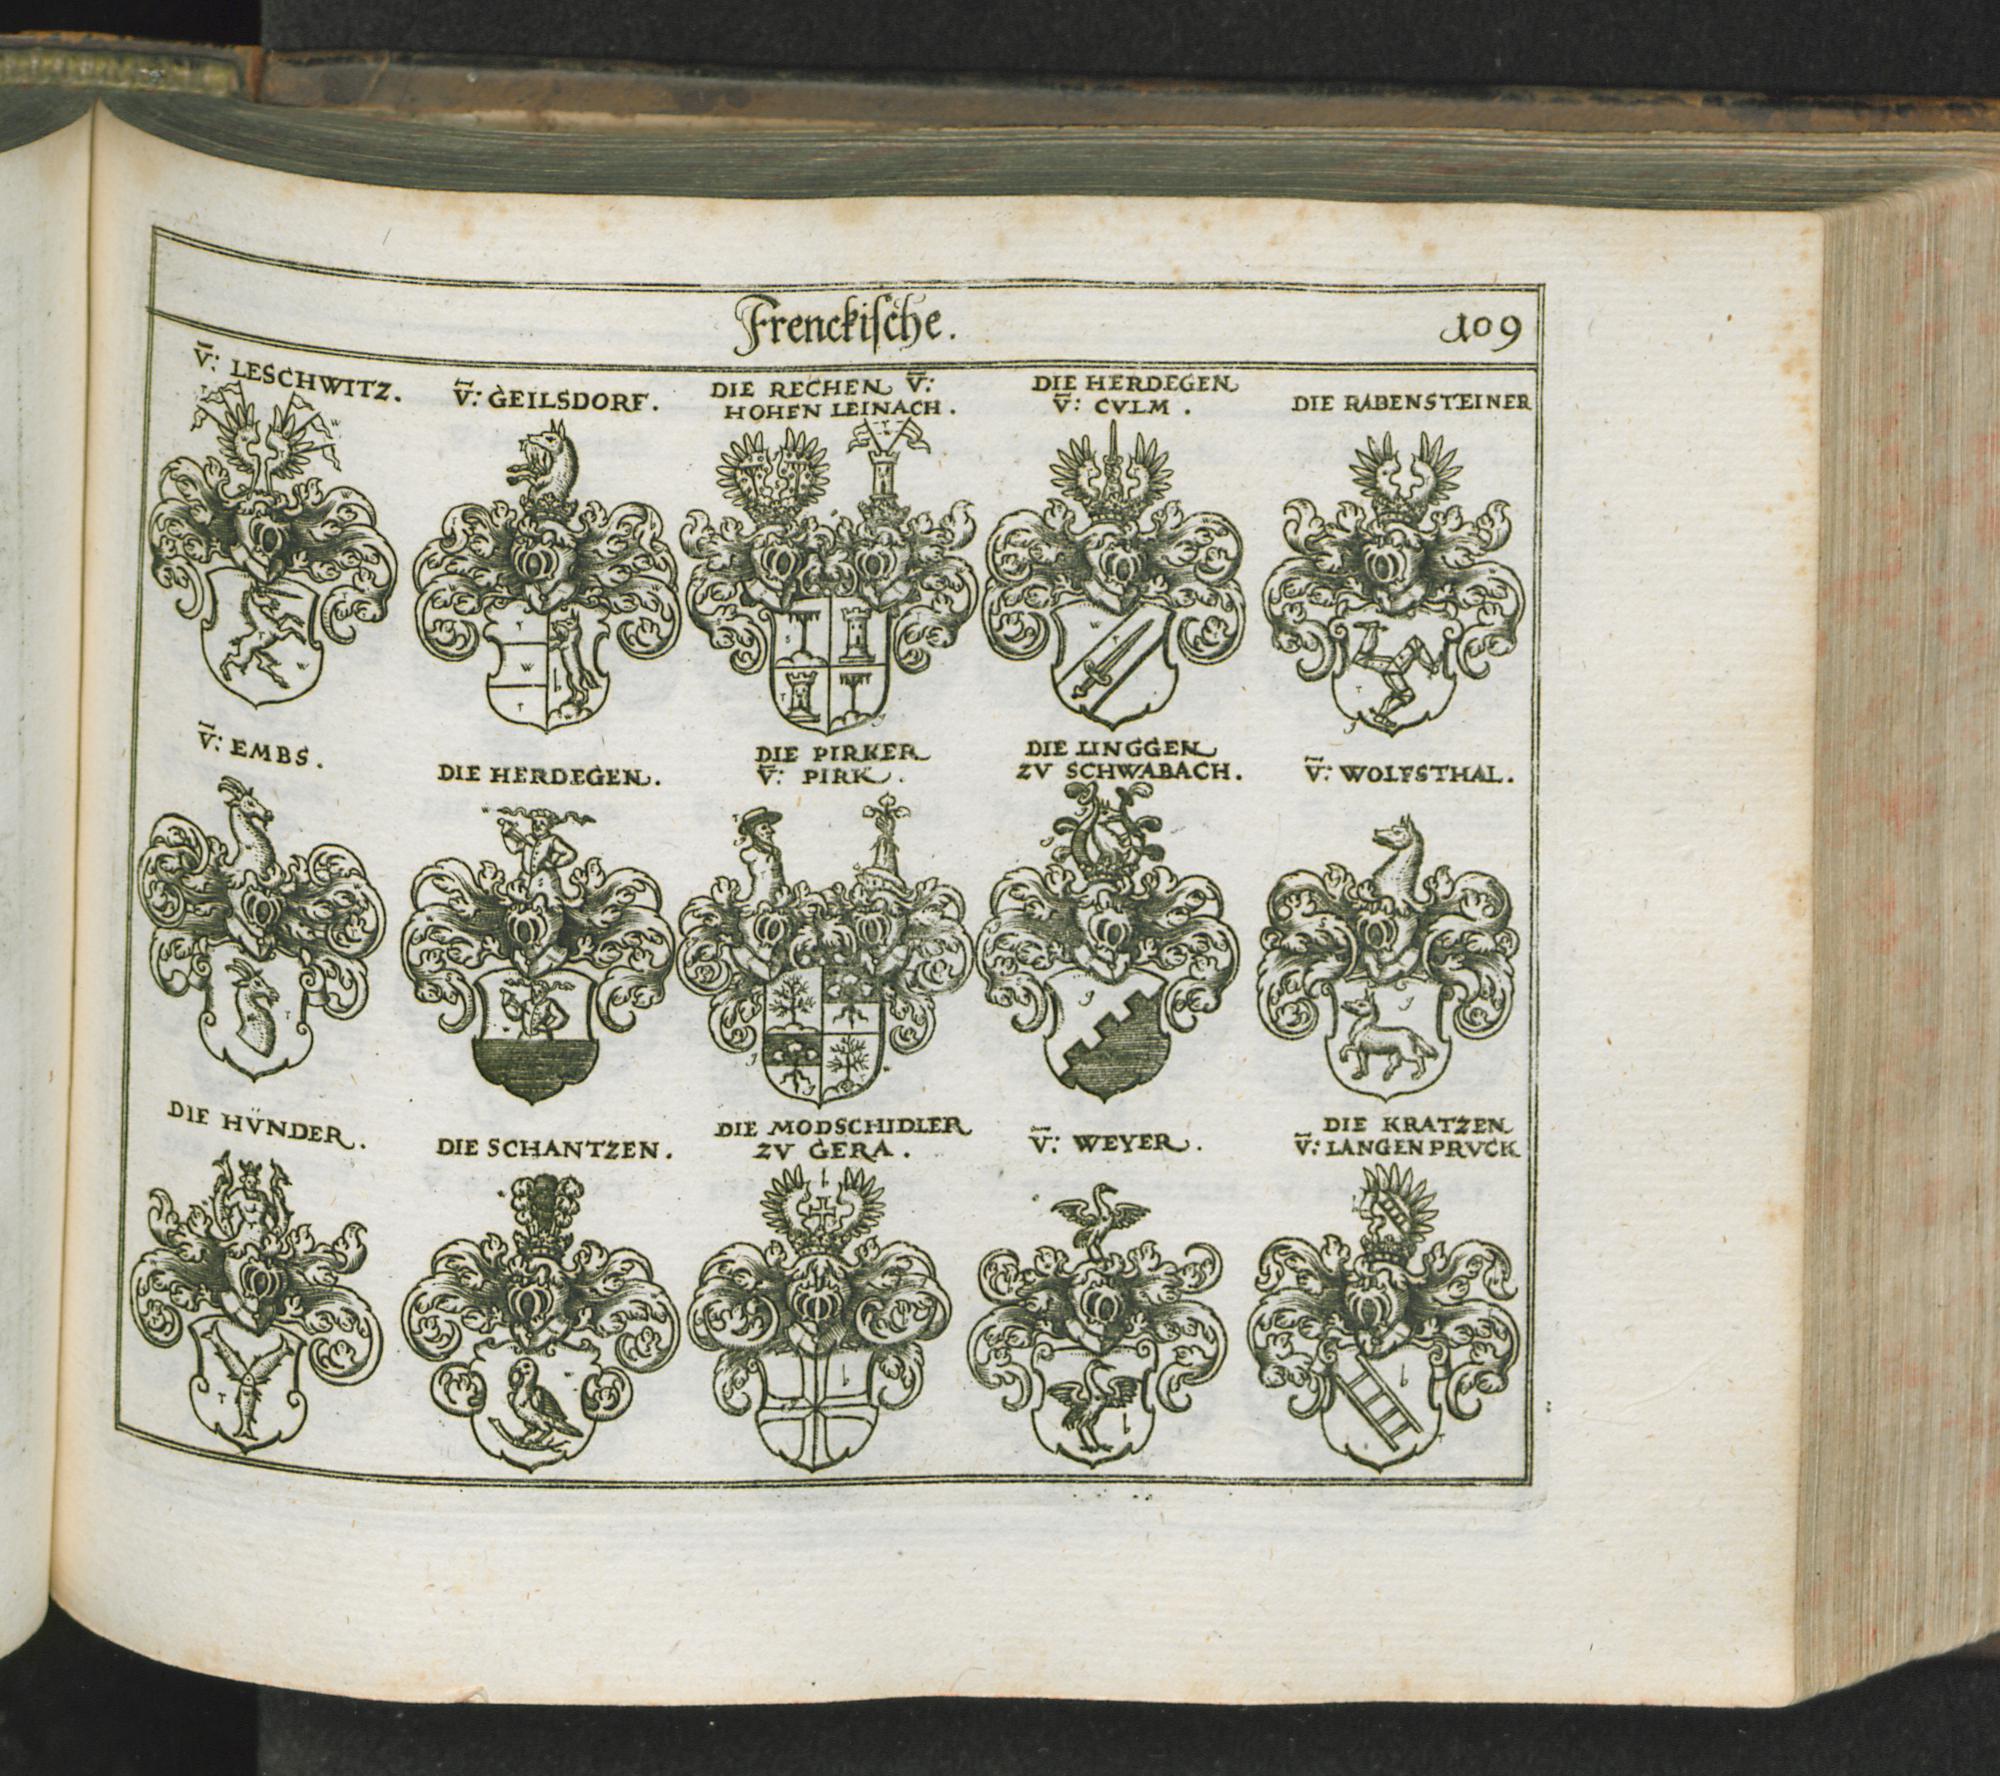 Frenckische.
109
V̄: LESCHWITZ.
V̄: GEILSDORF.
DIE RECHEN V̄:
HOHEN LEINACH.
DIE HERDEGEN
V̄: CVLM.
DIE RABENSTEINER
V̄: EMBS.
DIE HERDEGEN.
DIE PIRKER
V̄: PIRK.
DIE LINGGEN
ZV SCHWABACH.
V̄: WOLFSTHAL.
DIE HV̈NDER.
DIE SCHANTZEN.
DIE MODSCHIDLER
ZV GERA.
V̄: WEYER.
DIE KRATZEN
V̄: LANGENPRVCK